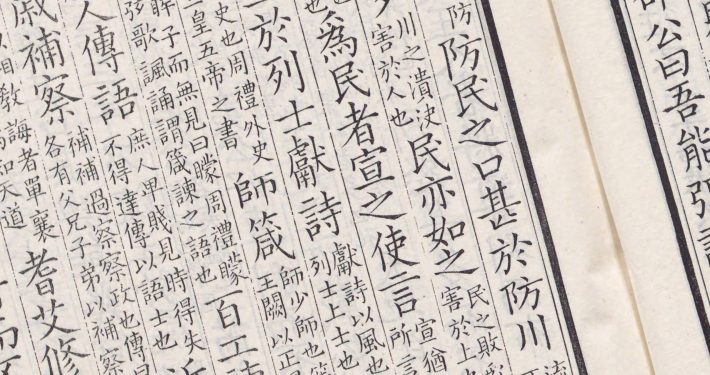 公曰吾能弭
防
防民之口甚於防川
川之潰決
害於人也
民亦如之
民之敗
害於上
為民者宣之使言
宣猶
所言
於列士獻詩
獻詩以風也
列士上士也
史也周禮外史
皇五帝之書
師箴
師少師也箴
王闕以正
眸子而無見曰矇周禮矇
弦歌諷誦謂箴諫之語也
百工
人傳語
庶人卑賤見時得失
不得達傳以語士也
近
補察
補補過察察政也傳曰
各有父兄子弟以補察
教誨者單襄
知天道
耆艾修
而